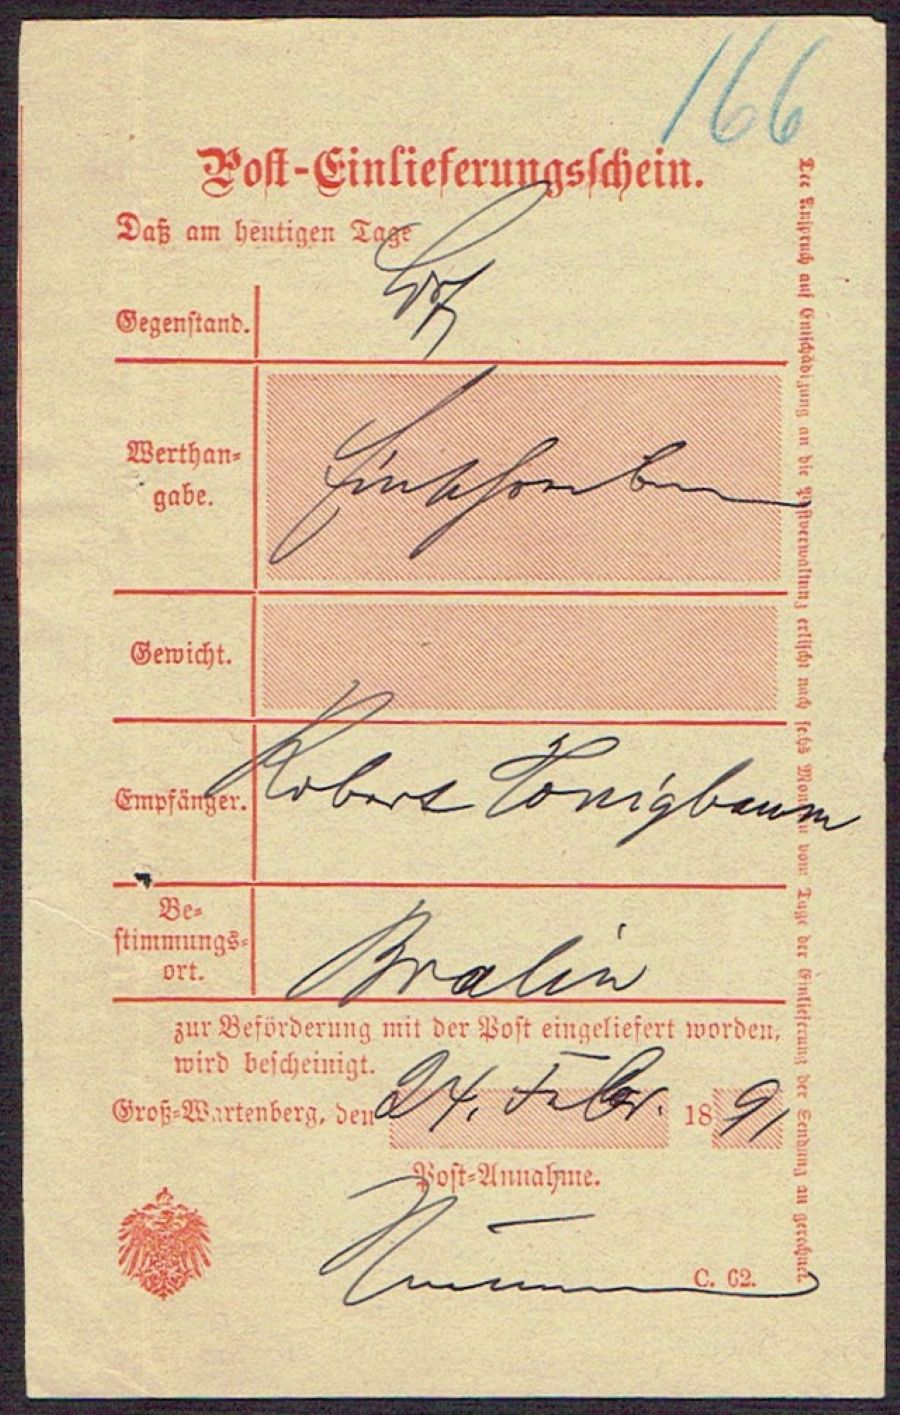 166
Post-Einlieferungsschein.
Daß am heutigen Tage
Gegenstand.
Werthan-
gabe.
Einschreiben
Gewicht.
Empfänger. Robert Königbaum
Be-
stimmungs-
ort.
Bralin
zur Beförderung mit der Post eingeliefert worden,
wird bescheinigt.
Groß-Wartenberg, den 24. Febr. 1891
Post-Annahme.
C. 62.
Der Anspruch auf Entschädigung an die Postverwaltung erlischt nach sechs Monaten vom Tage der Einlieferung der Sendung an gerechnet.